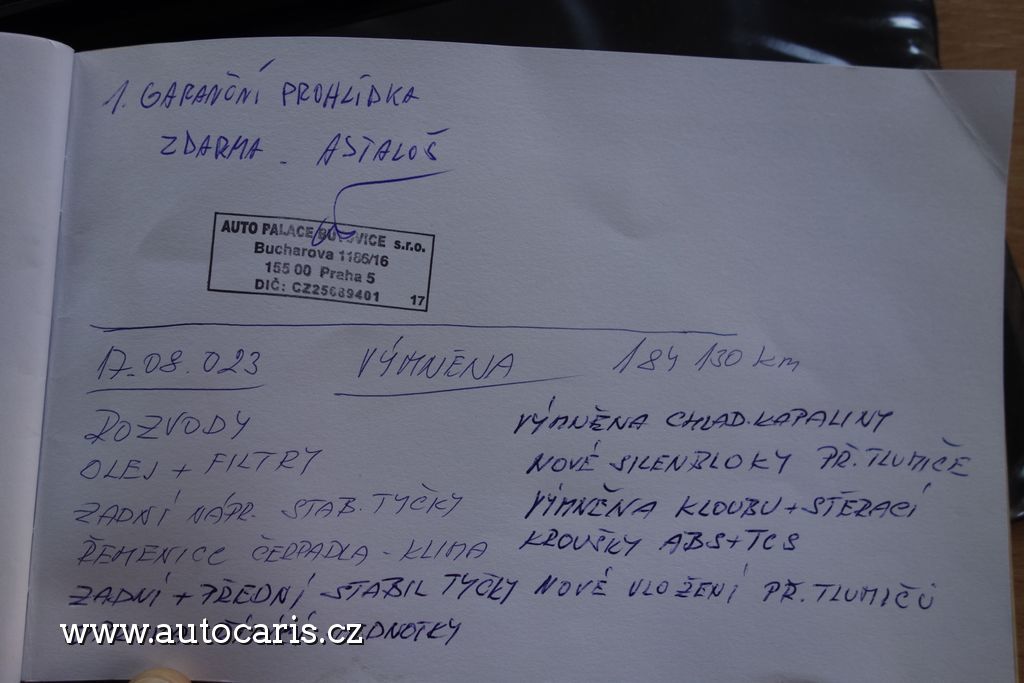 1. GARANČNÍ PROHLÍDKA
ZDARMA. ASTALOŠ
AUTO PALACE BUTOVICE s.r.o.
Bucharova 1186/16
155 00 Praha 5
DIČ: CZ25689401 17
17.08.023 VÝMNĚNA 184 130 km
ROZVODY
OLEJ + FILTRY
ZADNÍ NÁPR. STAB. TYČKY
ŘEMENICE ČERPADLA - KLIMA
ZADNÍ + PŘEDNÍ STABIL TYČKY
JEDNOTKY
VÝMNĚNA CHLAD. KAPALINY
NOVÉ SILENBLOKY PŘ. TLUMIČE
VÝMNĚNA KLOUBU + STĚRACÍ
KROUŠKY ABS + TCS
NOVÉ ULOŽENÍ PŘ. TLUMIČŮ
www.autocaris.cz